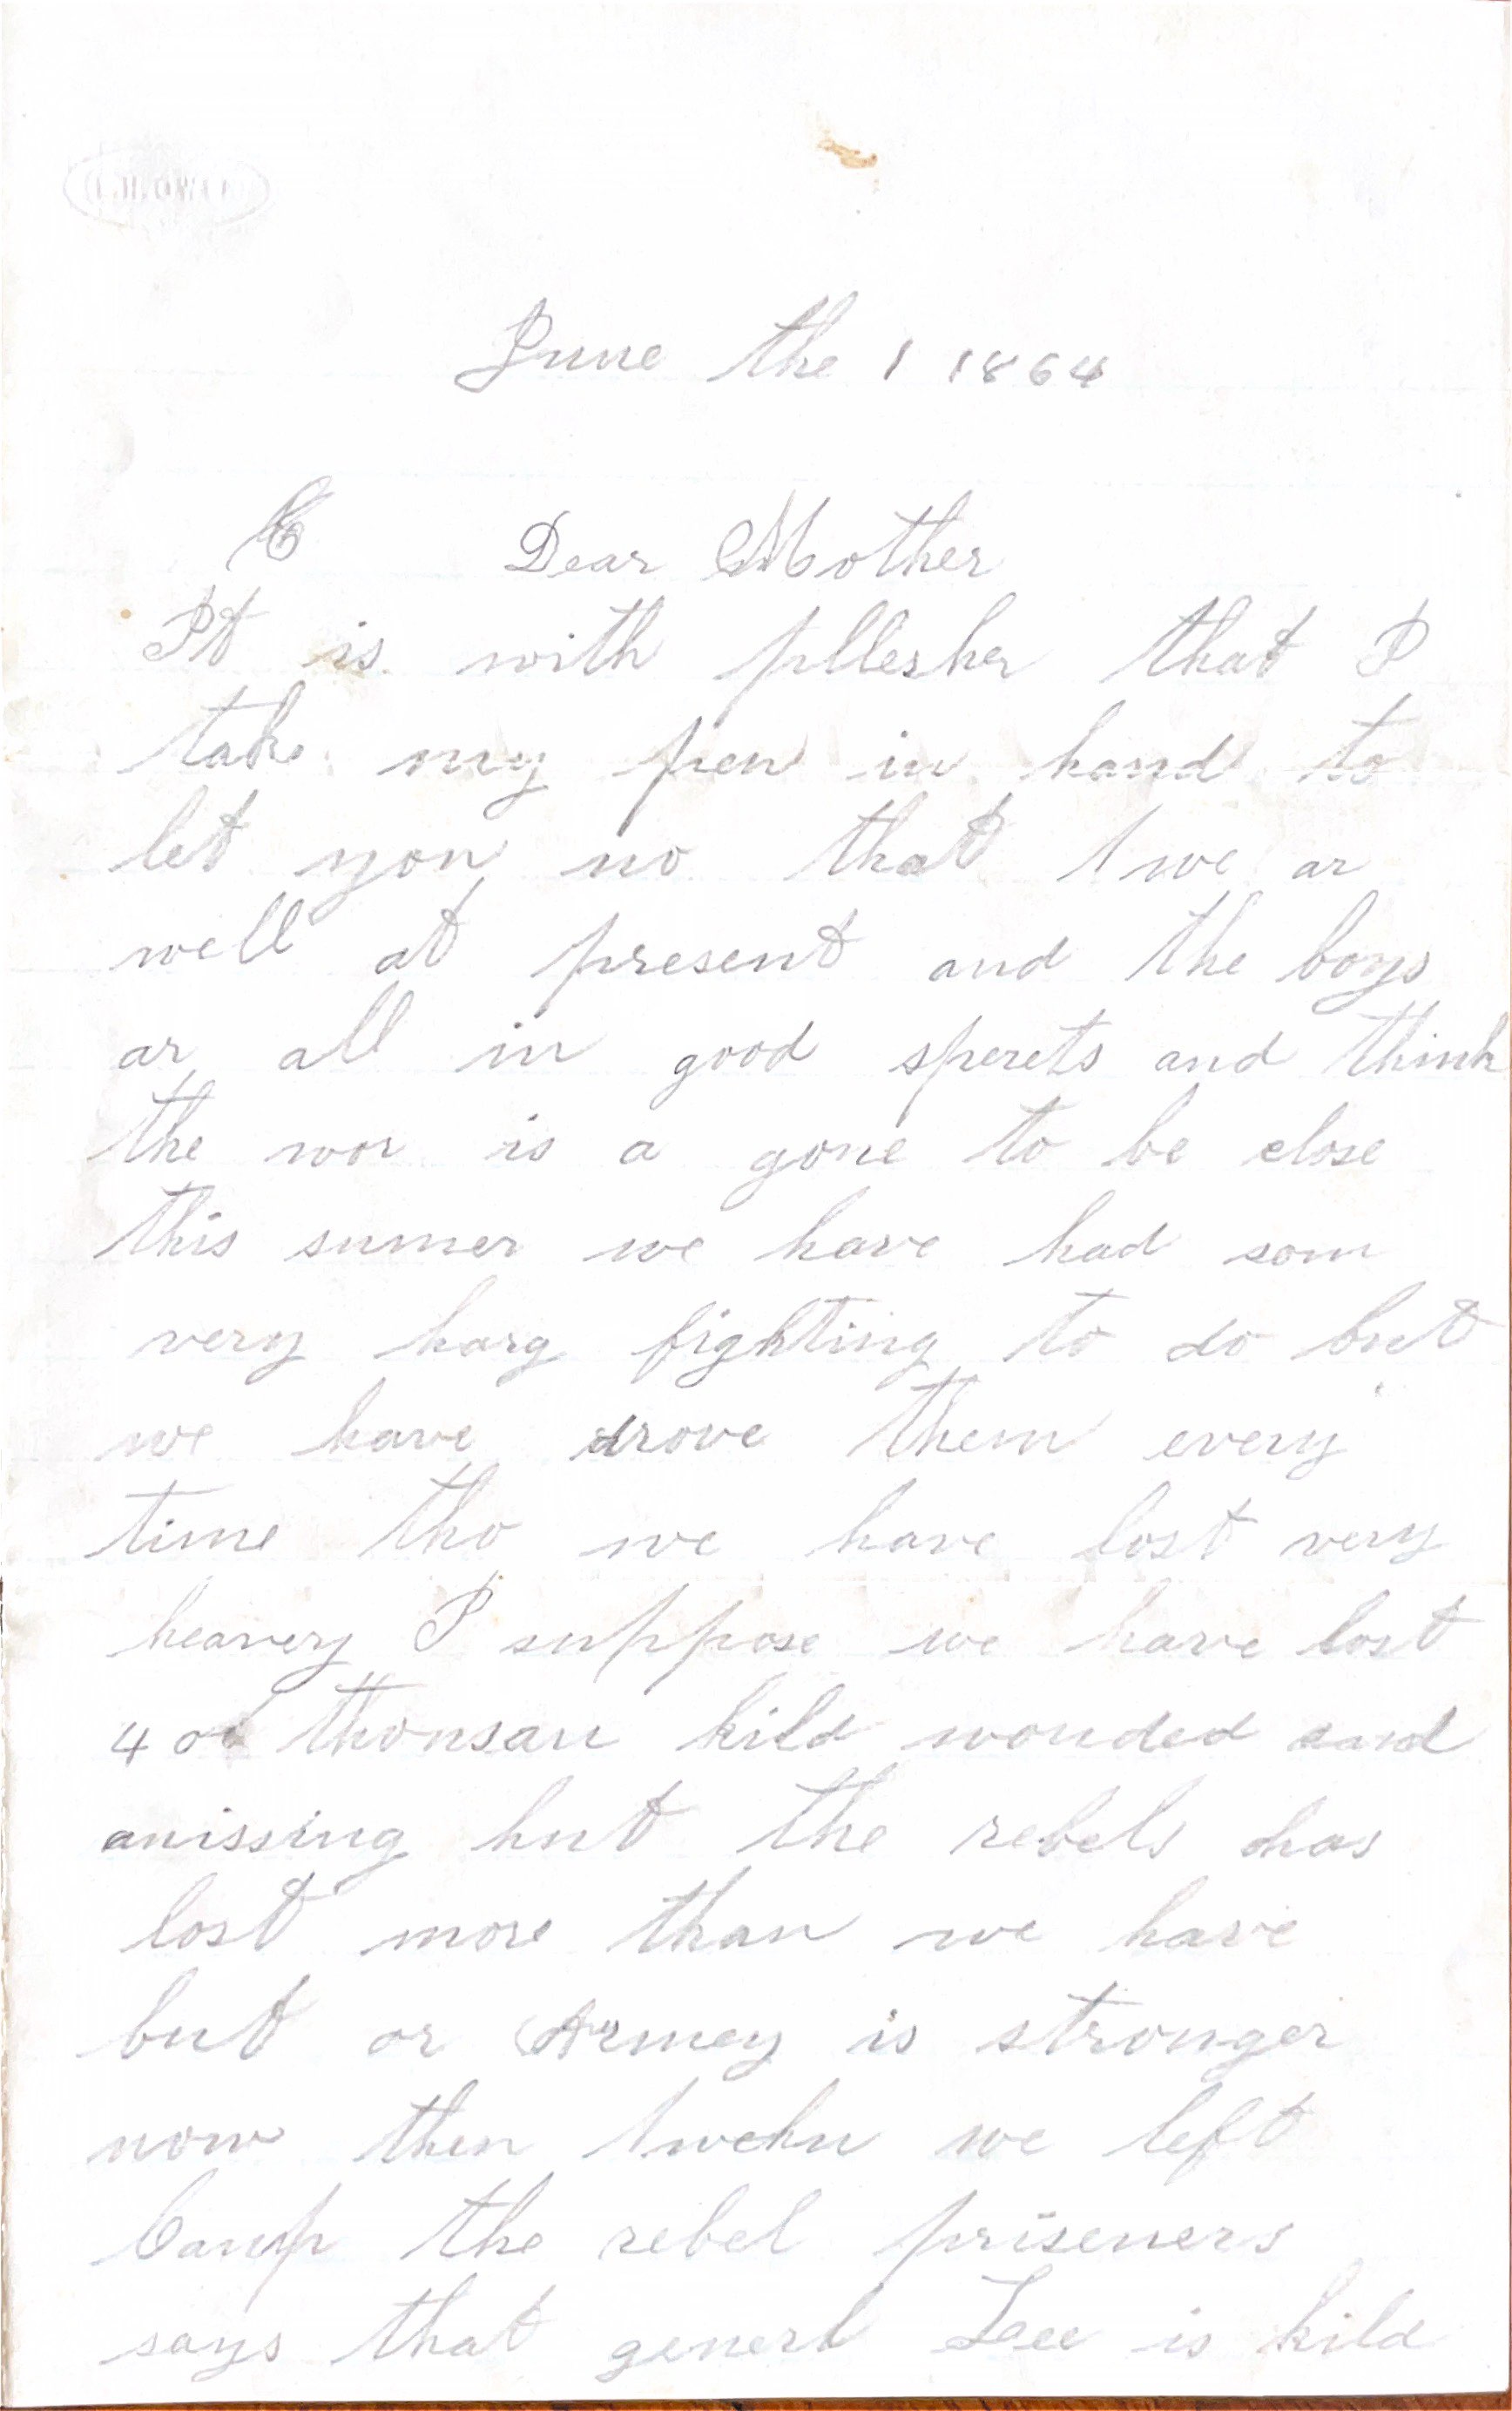 June the 1 1864
Dear Mother
It is with pllesher that I
take my pen in hand to
let you no that we ar
well at present and the boys
ar all in good sperets and think
the wor is a gone to be close
this sumer we have had som
very harg fighting to do but
we have drove them every
time tho we have lost very
heavery I suppose we have lost
40 thousan kild wonded and
missing but the rebels has
lost more than we have
but or Armey is stronger
now then wehn we left
Camp the rebel priseners
says that generl Lee is kild